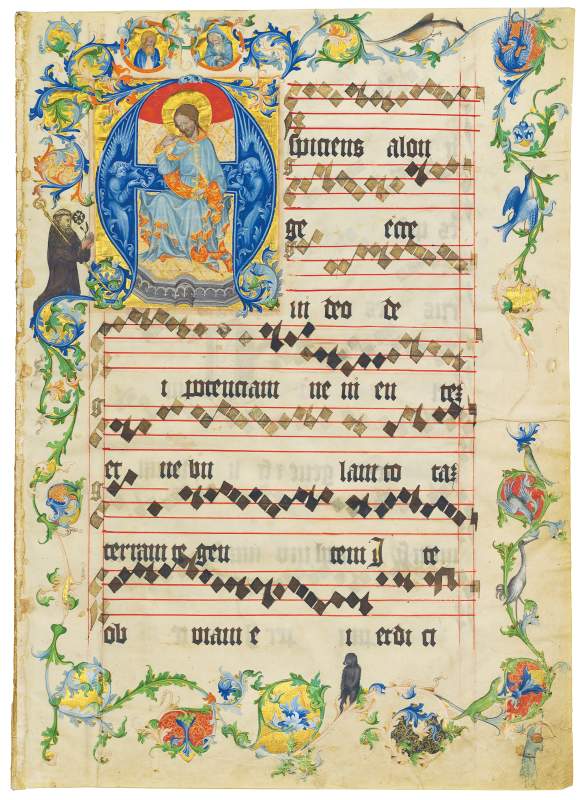 Aspiciens a lon
ge ecce
vi deo de
i potenciam ve ni en tez
et ne bu lam to taz
terram te gen tem I te
ob viam e i et di ci